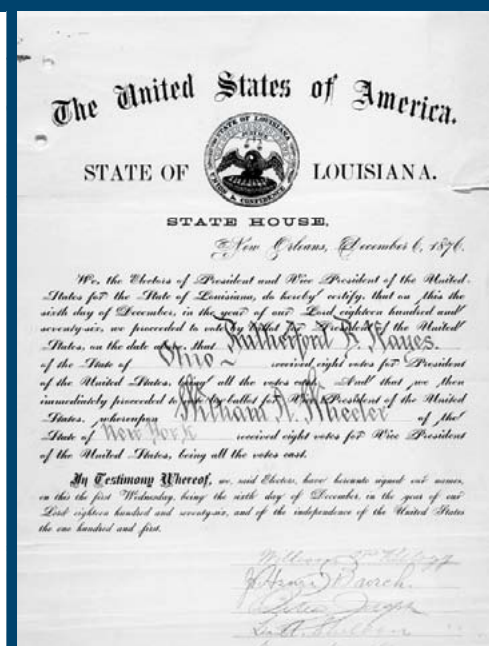 The United States of America.
STATE OF LOUISIANA.
STATE OF LOUISIANA
UNION & CONFIDENCE
STATE HOUSE,
New Orleans, December 6, 1876.
We, the Electors of President and Vice President of the United
States for the State of Louisiana, do hereby certify, that on this the
sixth day of December, in the year of our Lord eighteen hundred and
seventy-six, we proceeded to vote by ballot for President of the United
States, on the date above, that Rutherford B. Hayes.
of the State of Ohio received eight votes for President
of the United States, being all the votes cast. And that we then
immediately proceeded to vote by ballot for Vice President of the United
States, whereupon William A. Wheeler of the
State of New York received eight votes for Vice President
of the United States, being all the votes cast.
In Testimony Whereof, we, said Electors, have hereunto signed our names,
on this the first Wednesday, being the sixth day of December, in the year of our
Lord eighteen hundred and seventy-six, and of the independence of the United States
the one hundred and first.
William P. Kellogg
J. Henri Burch.
Peter Joseph